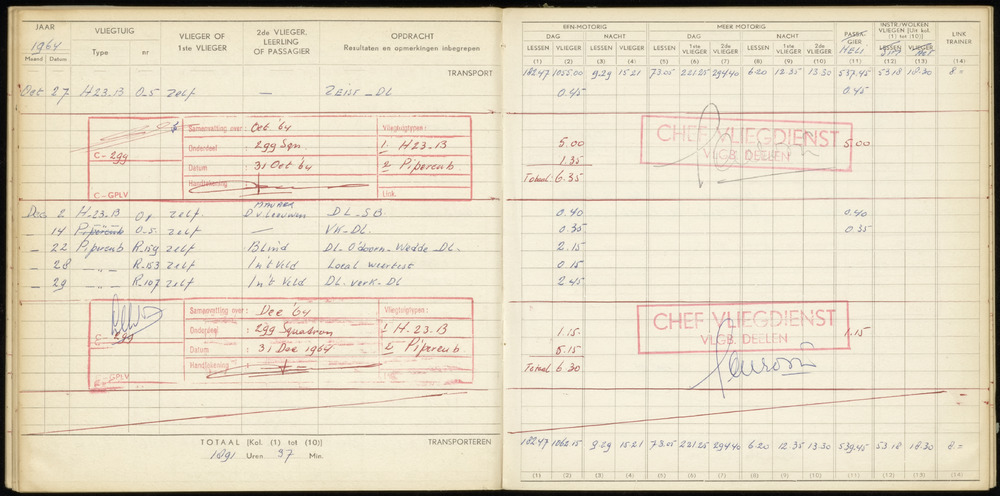 JAAR VLIEGTUIG VLIEGER OF 1ste VLIEGER 2de VLIEGER, LEERLING OF PASSAGIER OPDRACHT Resultaten en opmerkingen inbegrepen
1964 Maand Datum Type nr
TRANSPORT
Oct 27 H23.B O-5 Zelf — ZEIST - DL
C-299
C-GPLV
Samenvatting over: Oct '64
Onderdeel: 299 Sqn.
Datum: 31 Oct '64
Handtekening:
Vliegtuigtypen:
1 H23-B
2 Pipercub
Link.
Dec 2 H-23.B O-1 Zelf D v Leeuwen DL - SB
— 14 Pipercub O-5 zelf — VK-DL.
— 22 Pipercub R-159 zelf Blind DL- O'doorn - Wedde - DL.
— 28 -„- R-153 zelf In't Veld Local weertest
— 29 -„- R-107 zelf In't Veld DL. verk - DL
299
GPLV
Samenvatting over: Dec '64
Onderdeel: 299 Squadron
Datum: 31 Dec 1964
Handtekening:
Vliegtuigtypen:
1 H.23.B
2 Pipercub.
TOTAAL [Kol. (1) tot (10)] TRANSPORTEREN
1891 Uren 37 Min.
EEN-MOTORIG MEER MOTORIG PASSAGIER INSTR./WOLKEN VLIEGEN [Uit kol. (1) tot (10)] LINK TRAINER
DAG NACHT DAG NACHT
LESSEN VLIEGER LESSEN VLIEGER LESSEN 1ste VLIEGER 2de VLIEGER LESSEN 1ste VLIEGER 2de VLIEGER HELI LESSEN VLIEGER
(1) (2) (3) (4) (5) (6) (7) (8) (9) (10) (11) (12) (13) (14)
182.47 1055.00 9.29 15.21 73.05 221.25 294.40 6.20 12.35 13.30 537.45 53.18 18.30 8 =
0.45 0.45
CHEF VLIEGDIENST
VLGB. DEELEN
5.00 5.00
1.35
Totaal 6.35
0.40 0.40
0.35 0.35
2.15
0.15
2.45
CHEF VLIEGDIENST
VLGB. DEELEN
1.15 1.15
5.15
Totaal 6.30
182.47 1062.15 9.29 15.21 73.05 221.25 294.40 6.20 12.35 13.30 539.45 53.18 18.30 8. =
(1) (2) (3) (4) (5) (6) (7) (8) (9) (10) (11) (12) (13) (14)